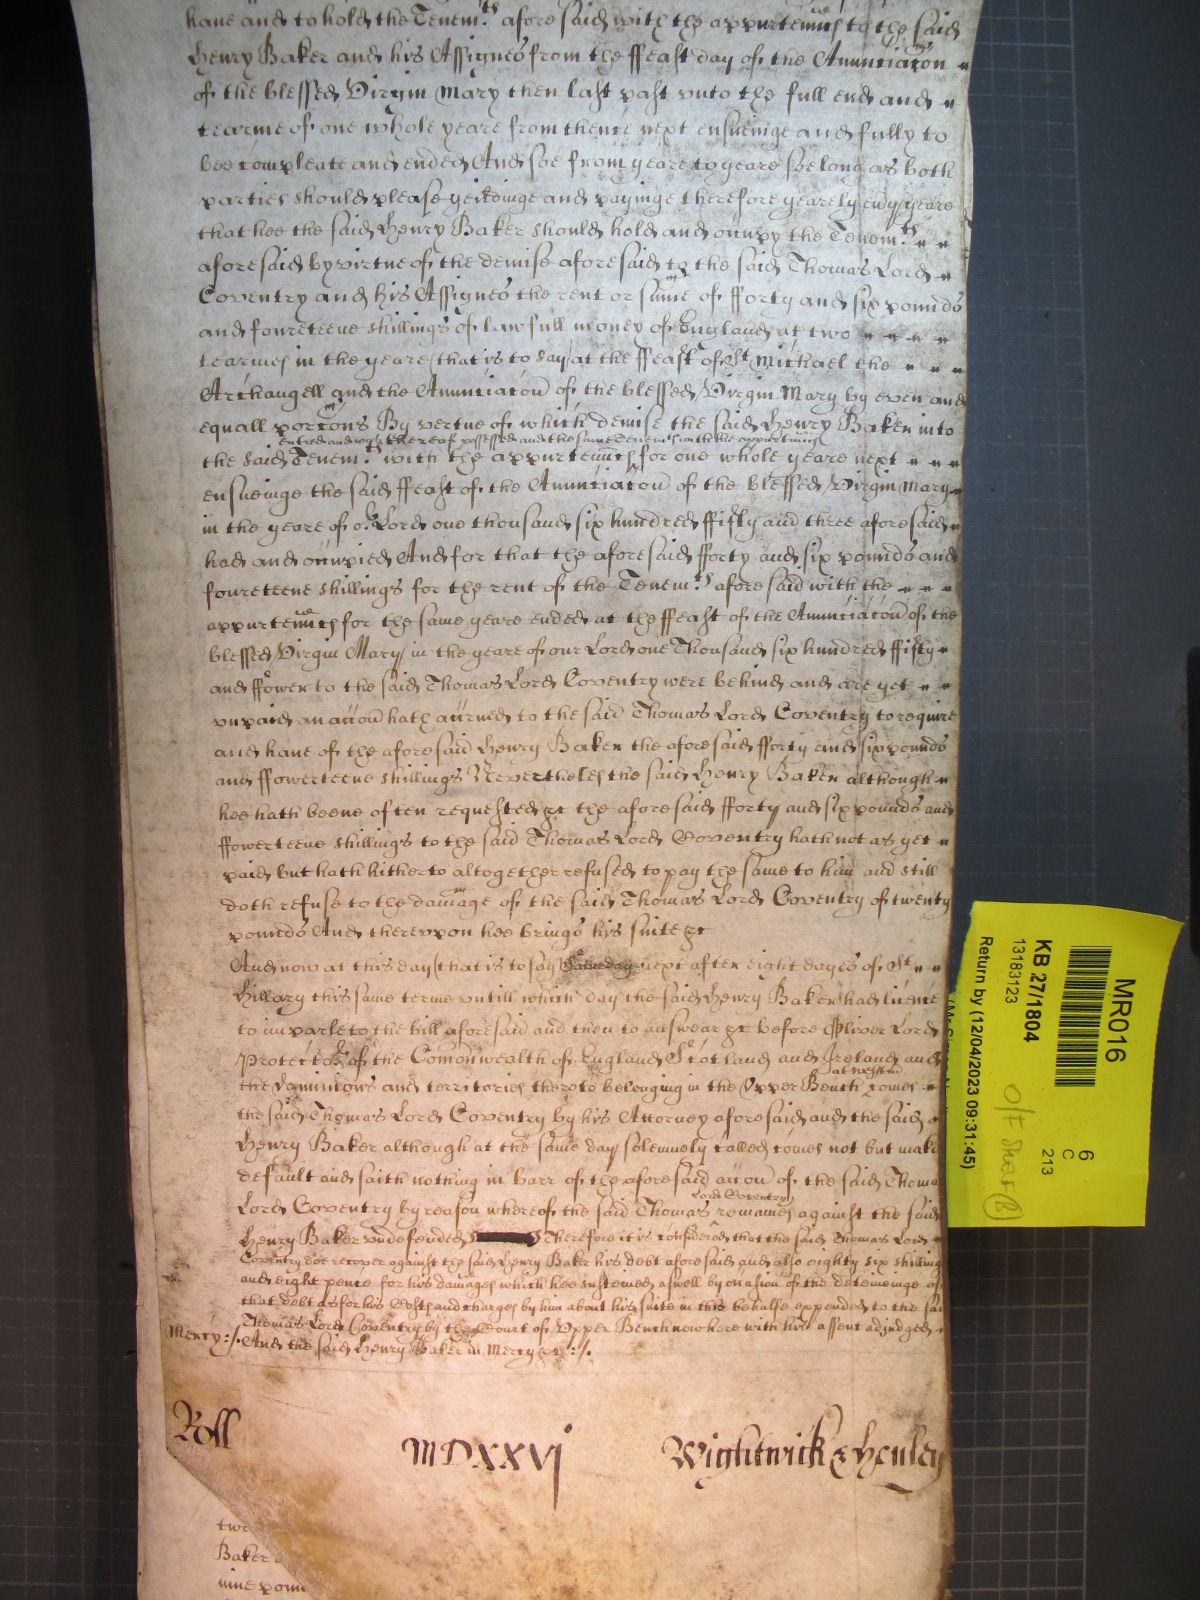 haue and to hold the Tenemts afore said with the appurtenncs to the said
Henry Baker and his Assignes from the ffeast day of the Annuntiacon
of the blessed Virgin Mary then last past vnto the full end and
tearme of one whole yeare from thence next ensueinge and fully to
bee compleate and ended And soe from yeare to yeare soe long as both
parties should please yeildinge and payinge therefore yearely euy yeare
that hee the said Henry Baker should hold and occupy the Tenemts
afore said by virtue of the demise afore said to the said Thomas Lord
Coventry and his Assignes the rent or sume of fforty and six pounds
and foureteene shillings of lawfull money of England at two
tearmes in the yeare (that is to say) at the ffeast of St Michael the
Archangell and the Annuntiacon of the blessed Virgin Mary by even and
equall porcons By vertue of which demise the said Henry Baker into
entred and was thereof possessed and the same Tenemts with the appurtenncs
the said Tenemts with the appurtenncs for one whole yeare next
ensueinge the said ffeast of the Annuntiacon of the blessed Virgin Mary
in the yeare of or Lord one thousand six hundred ffifty and three afore said
had and occupied And for that the afore said fforty and six pounds and
foureteene shillings for the rent of the Tenemts afore said with the
appurtenncs for the same yeare ended at the ffeast of the Annuntiacon of the
blessed Virgin Mary in the yeare of our Lord one Thousand six hundred ffifty
and ffower to the said Thomas Lord Coventry were behind and are yet
vnpaid an accon hath accrued to the said Thomas Lord Coventry to require
and haue of the afore said Henry Baker the afore said fforty and six pounds
and ffowerteene shillings Neverthelesse the said Henry Baker although
hee hath beene often requested &c the afore said fforty and six pounds and
ffowerteene shillings to the said Thomas Lord Coventry hath not as yet
paid but hath hitherto altogether refused to pay the same to him and still
doth refuse to the damage of the said Thomas Lord Coventry of twenty
pounds And therevpon hee brings his suite &c
And now at this day (that is to say) next after eight dayes of St
Hillary this same terme vntill which day the said Henry Baker had licence
to imparle to the bill afore said and then to answear &c before Oliver Lord
Protector of the Comonwealth of England Scotland and Ireland and
at westm
the dominions and territories thereto belonging in the Vpper Bench comes
the said Thomas Lord Coventry by his Attorney afore said and the said
Henry Baker although at the same day solemnely called comes not but make
default and saith nothing in barr of the afore said accon of the said Thoma
Lord Coventry
Lord Coventry by reason whereof the said Thomas remaines against the said
Henry Baker vndefended Therefore it is considered that the said Thomas Lord
Coventry doe recover against the said Henry Baker his debt afore said and also eighty six shilling
and eight pence for his damages which hee susteined aswell by occasion of the deteineinge of
that debt as for his Costs and charges by him about his suite in this behalfe expended to the sai
Thomas Lord Coventry by the Court of Vpper Bench now here with his assent adjudged
Mercy:/. And the said Henry Baker in Mercy &c:/.
Roll MDXXVj Wightwick & Henley
two
Baker
nine poun
MR016
6
C
213
KB 27/1804
13183123
O/S Sheet (B)
Return by (12/04/2023 09:31:45)